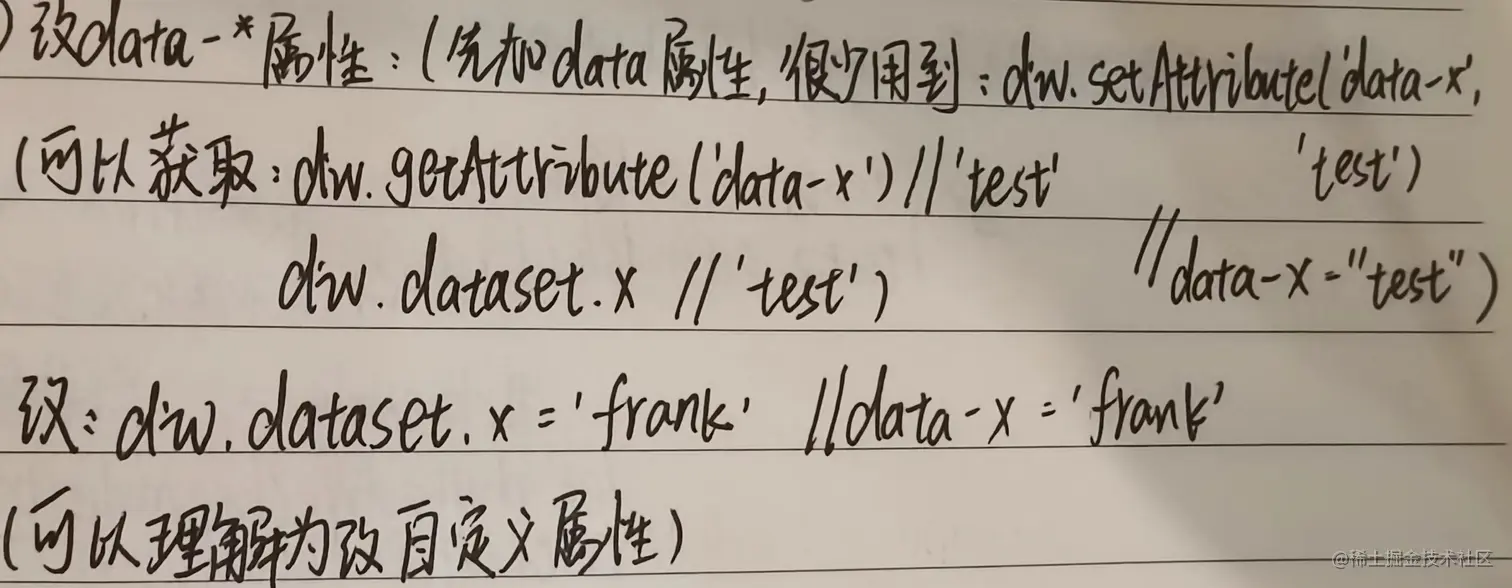 ）改data-*属性：（先加data属性，很少用到：div.setAttribute('data-x',
（可以获取：div.getAttribute('data-x') //'test' 'test')
div.dataset.x //'test'） //data-x="test"）
改：div.dataset.x='frank' //data-x='frank'
（可以理解为改自定义属性）
@稀土掘金技术社区